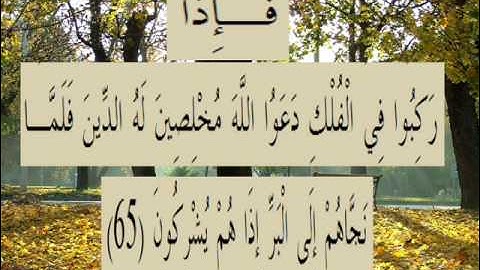 فَـــإِذَا
رَكِبُوا فِي الْفُلْكِ دَعَوُا اللَّهَ مُخْلِصِينَ لَهُ الدِّينَ فَلَمَّـــا
نَجَّاهُمْ إِلَى الْبَرِّ إِذَا هُمْ يُشْرِكُونَ (65)